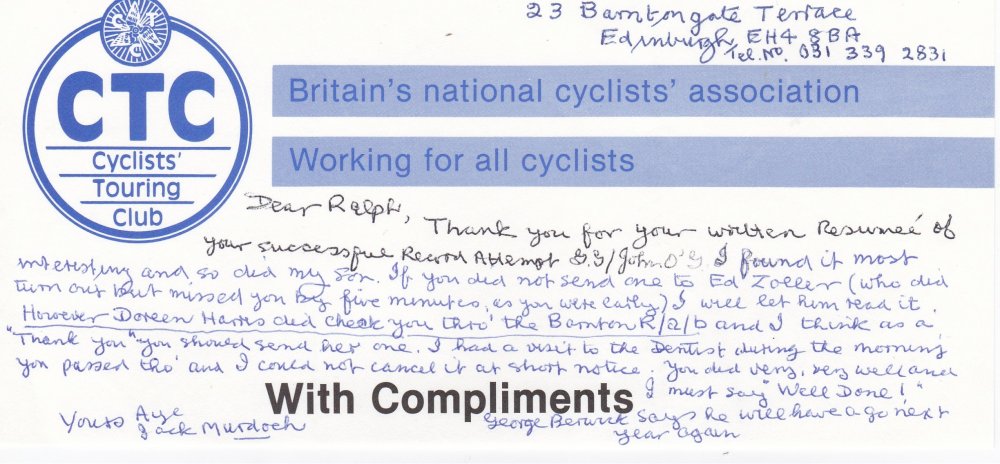 23 Barntongate Terrace
Edinburgh EH4 8BA
Tel. No. 031 339 2831
CTC
Cyclists'
Touring
Club
Britain's national cyclists' association
Working for all cyclists
Dear Ralph,
Thank you for your written Resumeé of
your successful Record Attempt G.G/John O'G. I found it most
interesting and so did my son. If you did not send one to Ed Zoller (who did
turn out but missed you by five minutes, as you were early) I will let him read it.
However Doreen Harris did check you thro' the Barnton R/a/b and I think as a
"Thank you" you should send her one. I had a visit to the Dentist during the morning
you passed thro' and I could not cancel it at short notice. You did very, very well and
I must say "Well Done!"
With Compliments
Yours Aye
Jack Murdoch
George Berwick says he will have a go next
year again